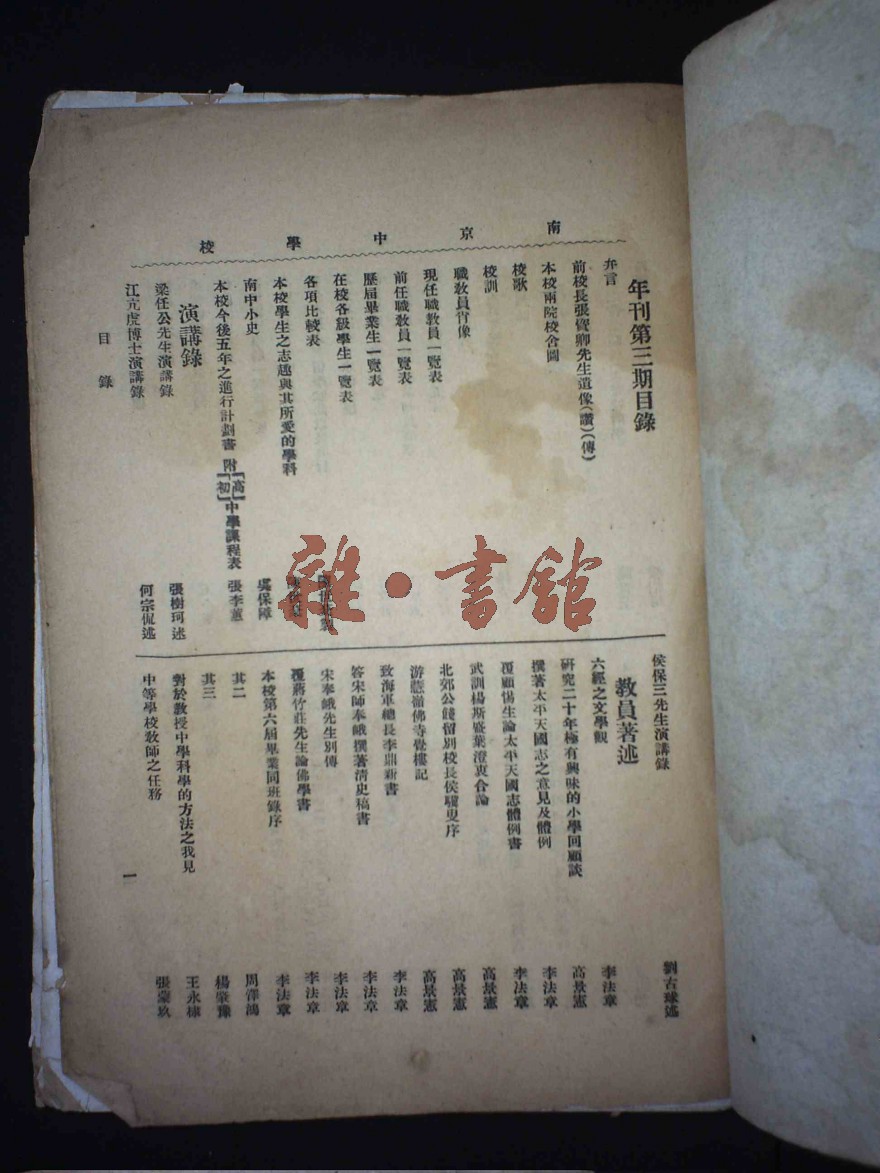 南京中學校
年刊第三期目錄
弁言
前校長張賓卿先生遺像(讚)(傳)
本校兩院校舍圖
校歌
校訓
職敎員肖像
現任職敎員一覽表
前任職敎員一覽表
歷屆畢業生一覽表
在校各級學生一覽表
各項比較表
本校學生之志趣與其所愛的學科
南中小史 虞保障
本校今後五年之進行計劃書 附「高」「初」中學課程表 張季蕙
演講錄
梁任公先生演講錄 張樹珂述
江亢虎博士演講錄 何宗侃述
侯保三先生演講錄 劉古球述
敎員著述
六經之文學觀 李法章
硏究二十年極有興味的小學回顧談 高景憲
撰著太平天國志之意見及體例 李法章
覆顧惕生論太平天國志體例書 李法章
武訓楊斯盛葉澄衷合論 高景憲
北郊公餞留別校長侯驥叟序 高景憲
游慧嶺佛寺覺樓記 高景憲
致海軍總長李鼎新書 李法章
答宋師奉峨撰著淸史稿書 李法章
宋奉峨先生別傳 李法章
覆蔣竹莊先生論佛學書 李法章
本校第六屆畢業同班錄序 李法章
其二 周澤鴻
其三 楊肇豫
對於敎授中學科學的方法之我見 王永棣
中等學校敎師之任務 張蒙玖
目錄
一
雜·書館